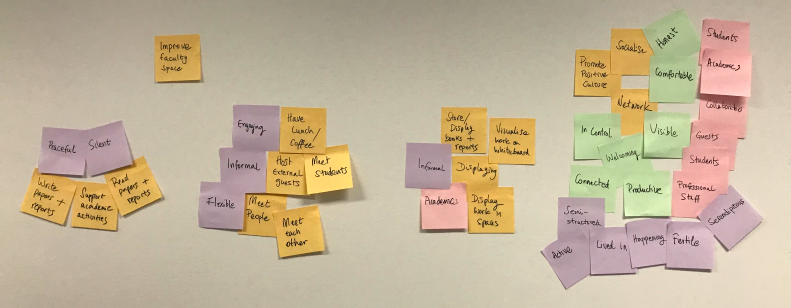 Improve
faculty
space
Peaceful
Silent
Write
papers +
reports
Support
academic
activities
Read
papers +
reports
Engaging
Have
Lunch/
Coffee
Informal
Host
External
guests
Meet
Students
Flexible
Meet
People
Meet
each
other
Store/
Display
books +
reports
Visualise
work on
whiteboard
Informal
Displaying
Academics
Display
work in
spaces
Socialise
Honest
Students
Promote
Positive
Culture
Comfortable
Academics
Network
Collaborators
In Control
Visible
Guests
Welcoming
Students
Connected
Productive
Professional
Staff
Semi-
structured
Serendipitous
Active
Lived in
Happening
Fertile